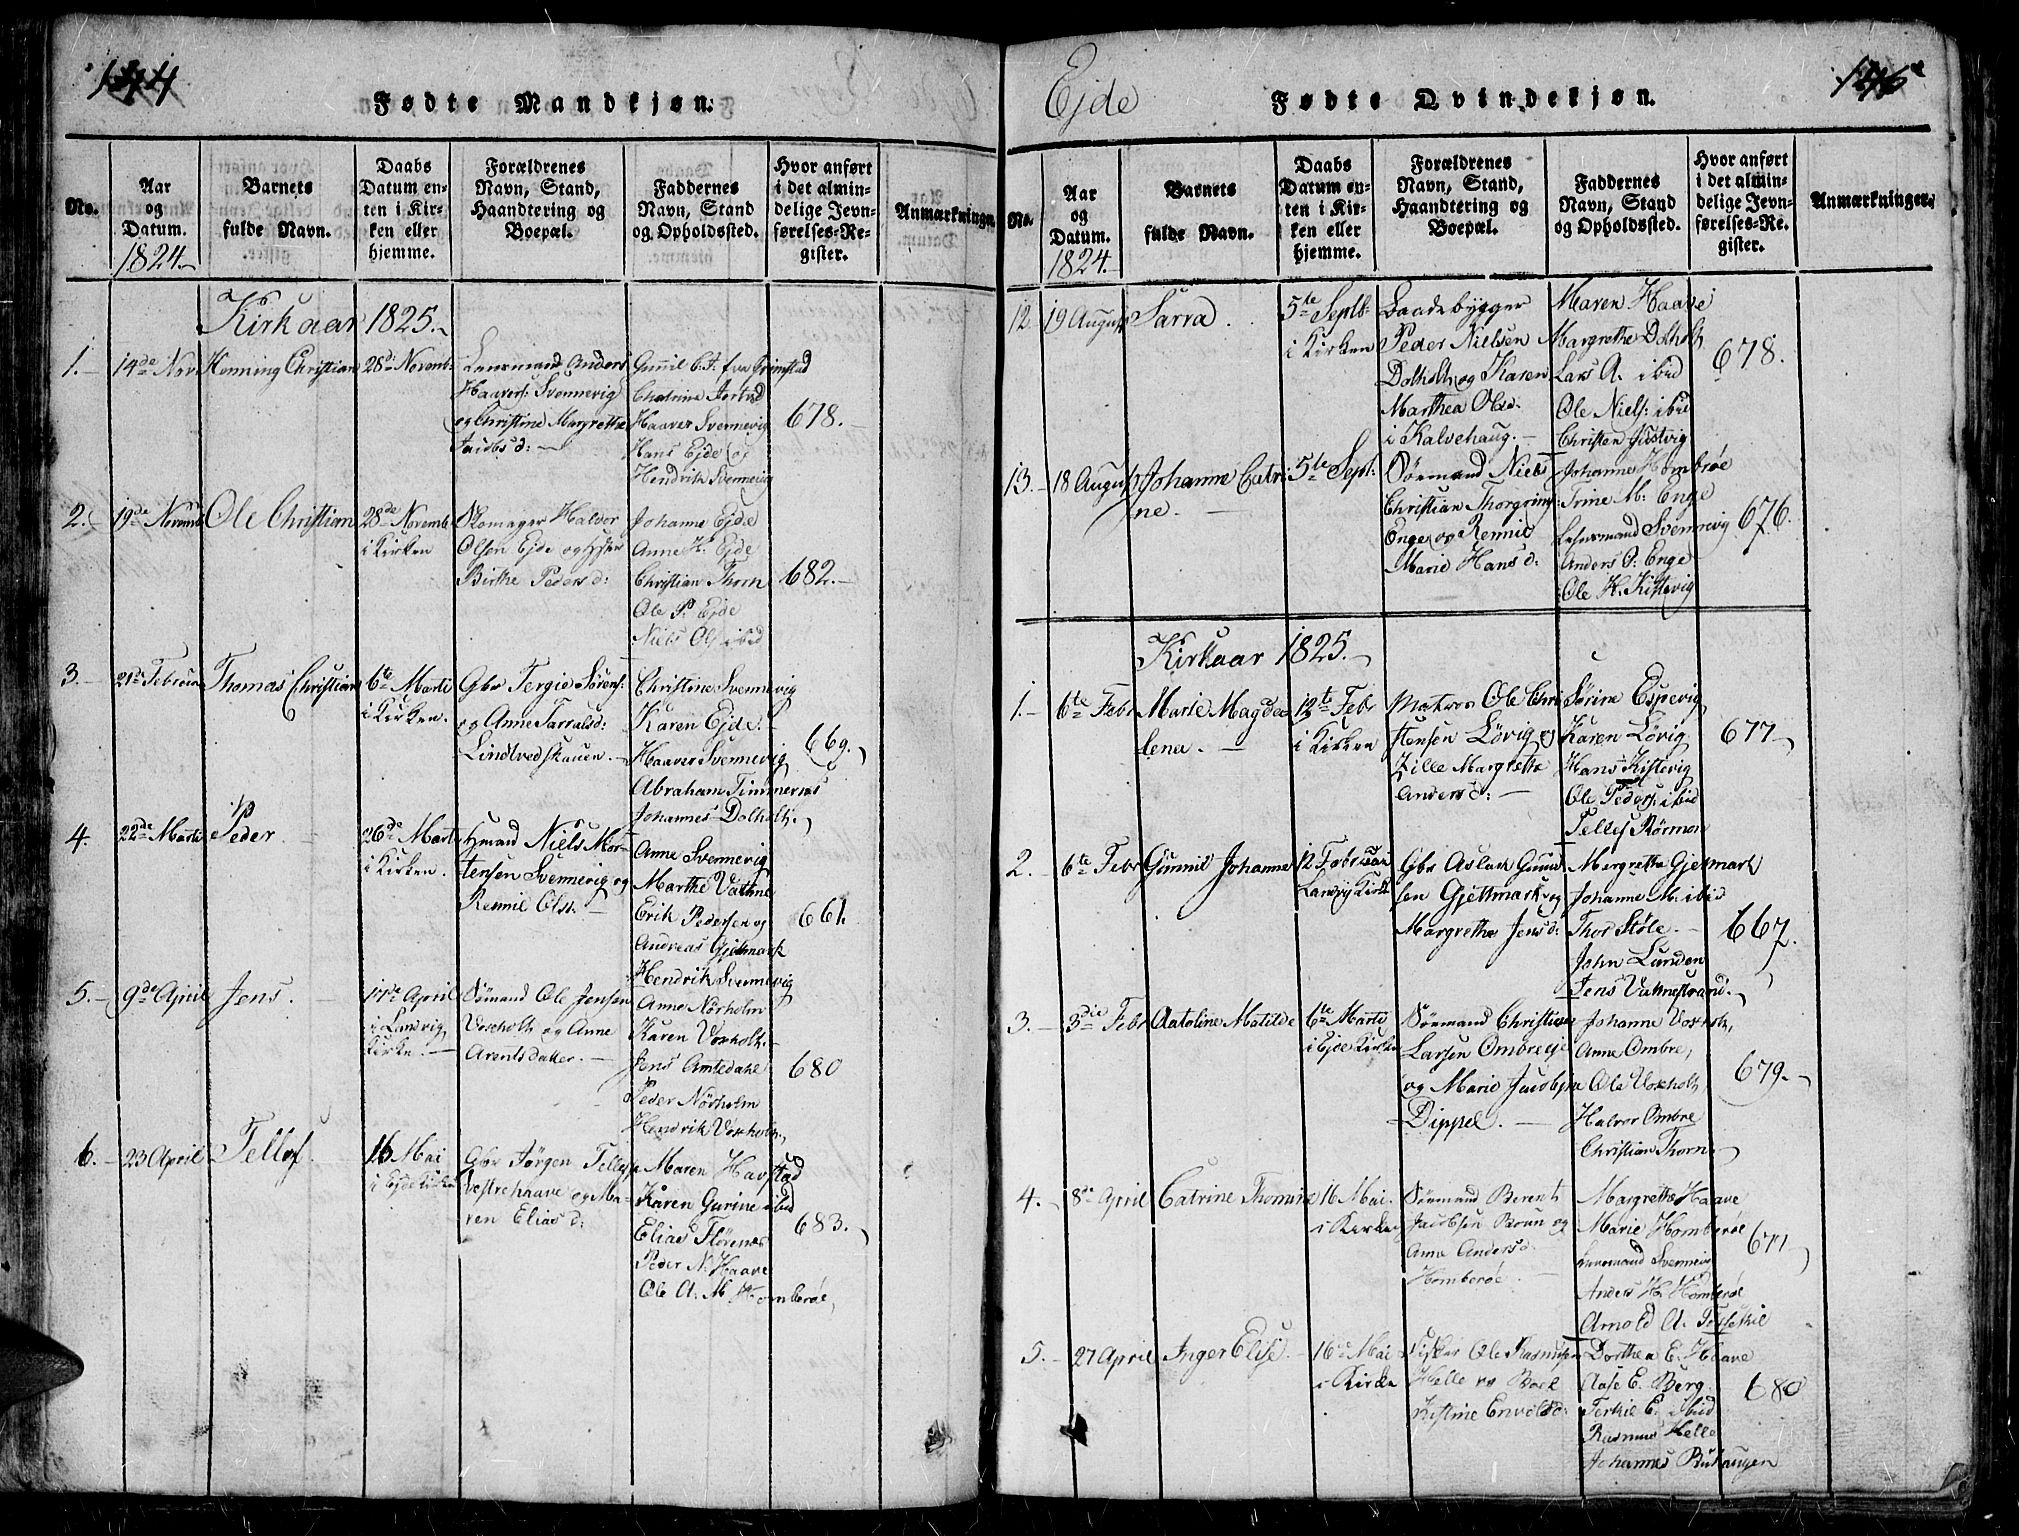 144
Fødte Mandkjøn.
No.
Aar
og
Datum.
1824.
Barnets
fulde Navn.
Daabs
Datum en-
ten i Kir-
ken eller
hjemme.
Forældrenes
Navn, Stand,
Haandtering og
Boepæl.
Faddernes
Navn, Stand
og Opholdssted.
Hvor anført
i det almin-
delige Jevn-
førelses-Re-
gister.
Anmærkninger.
Kirkaar 1825.
1.
14de Nov
Henning Christian
28de Novemb:
Lensmand Anders
Haavers: Svennevig
og Christine Margrethe
Jacobsd:
Gunnil C. T. fra Grimstad
Chatrine
Haaver Svennevig
Hans Ejde og
Hendrik Svennevig
678.
2.
19de Novemb
Ole Christian
28de Novemb
i Kirken
Skomager Halvor
Olsen Ejde og
Birthe Pedersd:
Johanne Ejde
Anne H. Ejde
Christian Thorn
Ole P. Ejde
Niels Ols ibid
682.
3.
21de Februar
Thomas Christian
6te Marti
i Kirken.
Gbr Tergie Sørens:
og Anne Tarralsd:
Lindtvedskauen.
Christine Svennevig
Karen Ejde.
Haaver Svennevig
Abraham Timmernæs
Johannes Dolholt.
669.
4.
22de Marti
Peder
26de Marti
i Kirken.
Hmand Niels Mor-
tensen Svennevig og
Rennie Olsd.
Anne Svennevig
Marthe Vatne
Erik Pedersen og
Andreas Gjetmark
Hendrik Svennevig
661.
5.
9de April
Jens.
17de April
i Landvig
Kirke.
Sømand Ole Jensen
Voxholt og Anne
Arentsdatter.
Anne Nørholm
Karen Voxholt.
Jens Amtedahl
Peder Nørholm
Hendrik Voxholt.
680
6.
23 April
Tellef.
16 Mai
i Ejde Kirke
Gbr Jørgen Tellefs
Vestrehaave og Ma-
ren Eliasd:
Maren Havstad
Karen Gurine ibid
Elias Florenæs
Peder N. Haave
Ole A. M Homberøe,
683.
Ejde
Fødte Qvindekjøn.
146
No.
Aar
og
Datum.
1824.
Barnets
fulde Navn.
Daabs
Datum en-
ten i Kir-
ken eller
hjemme.
Forældrenes
Navn, Stand,
Haandtering og
Boepæl.
Faddernes
Navn, Stand
og Opholdssted.
Hvor anført
i det almin-
delige Jevn-
førelses-Re-
gister.
Anmærkninger.
12.
19 August
Sarra.
5te Septb:
i Kirken
Baadebygger
Peder Nielsen
Dolholt og Karen
Marthea Olsd.
i Kalvehaug.
Maren Haave
Margrethe Dolholt
Lars A. ibid
Ole Niels: ibid
Christen Justvig
678.
13.
18 August
Johanne Catri-
ne.
5te Sept:
Sømand Niels
Christian Thorgrims:
Enge og Rennie
Marie Hansd:
Johanne Homberøe
Trine M: Enge
Lehnsmand Svennevig
Anders P: Enge
Ole H. Kistevig
676.
Kirkaar 1825.
1.
6te Febr
Marie Magda-
lena.
12te Febr
i Kirken
Matros Ole Chri
stensen Løvig og
Zille Margrethe
Andersd:
Sørine Espevig
Karen Løvig
Hans Kistevig
Ole Peders: ibid
Tellef Rørmon
677
2.
6te Febr
Gunnil Johanne
12 Febr
Landvig Kirke
Gbr Aslak Gunn
sen Gjetmark og
Margrethe Jensd:
Margrethe Gjetmark
Johanne M. ibid
Thor Støle.
John Lunden
Jens Vatnestrand.
667.
3.
3die Febr
Aatoline Matilde
6te Marti
i Ejde Kirke
Sømand Christian
Larsen Ombre
og Marie Jacobine
Dippel.
Johanne Voxholt,
Anne Ombre,
Ole Voxholt
Halvor Ombre
Christian Thorn
679.
4.
8de April
Catrine Thomine
16 Mai.
i Kirke
Sømand Berent
Jacobsen Broun og
Anne Andersd:
Homberøe.
Margrethe Haave
Marie Homberøe
Lensmand Svennevig
Anders H. Homberøe
Arnold A. Fossekil
671
5.
27 April
Inger Elise.
16de Mai
i Kirke
Fisker Ole Rasmusen
Helle og Boel
Kistine Envoldsd:
Dorthea E. Haave
Aase E. Berg.
Terkil E. ibid
Rasmus Helle
Johannes Buhaugen
680